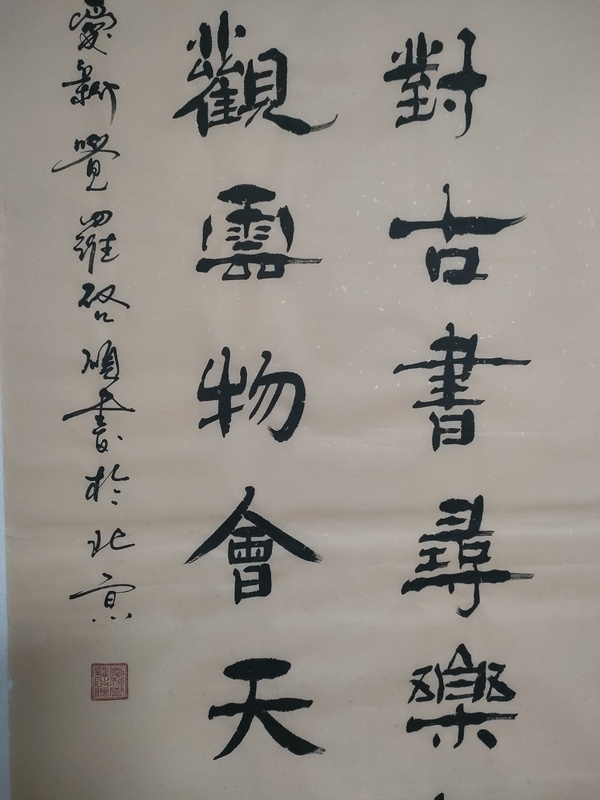 對古書尋樂
觀雲物會天
愛新覺羅啓碩書於北京